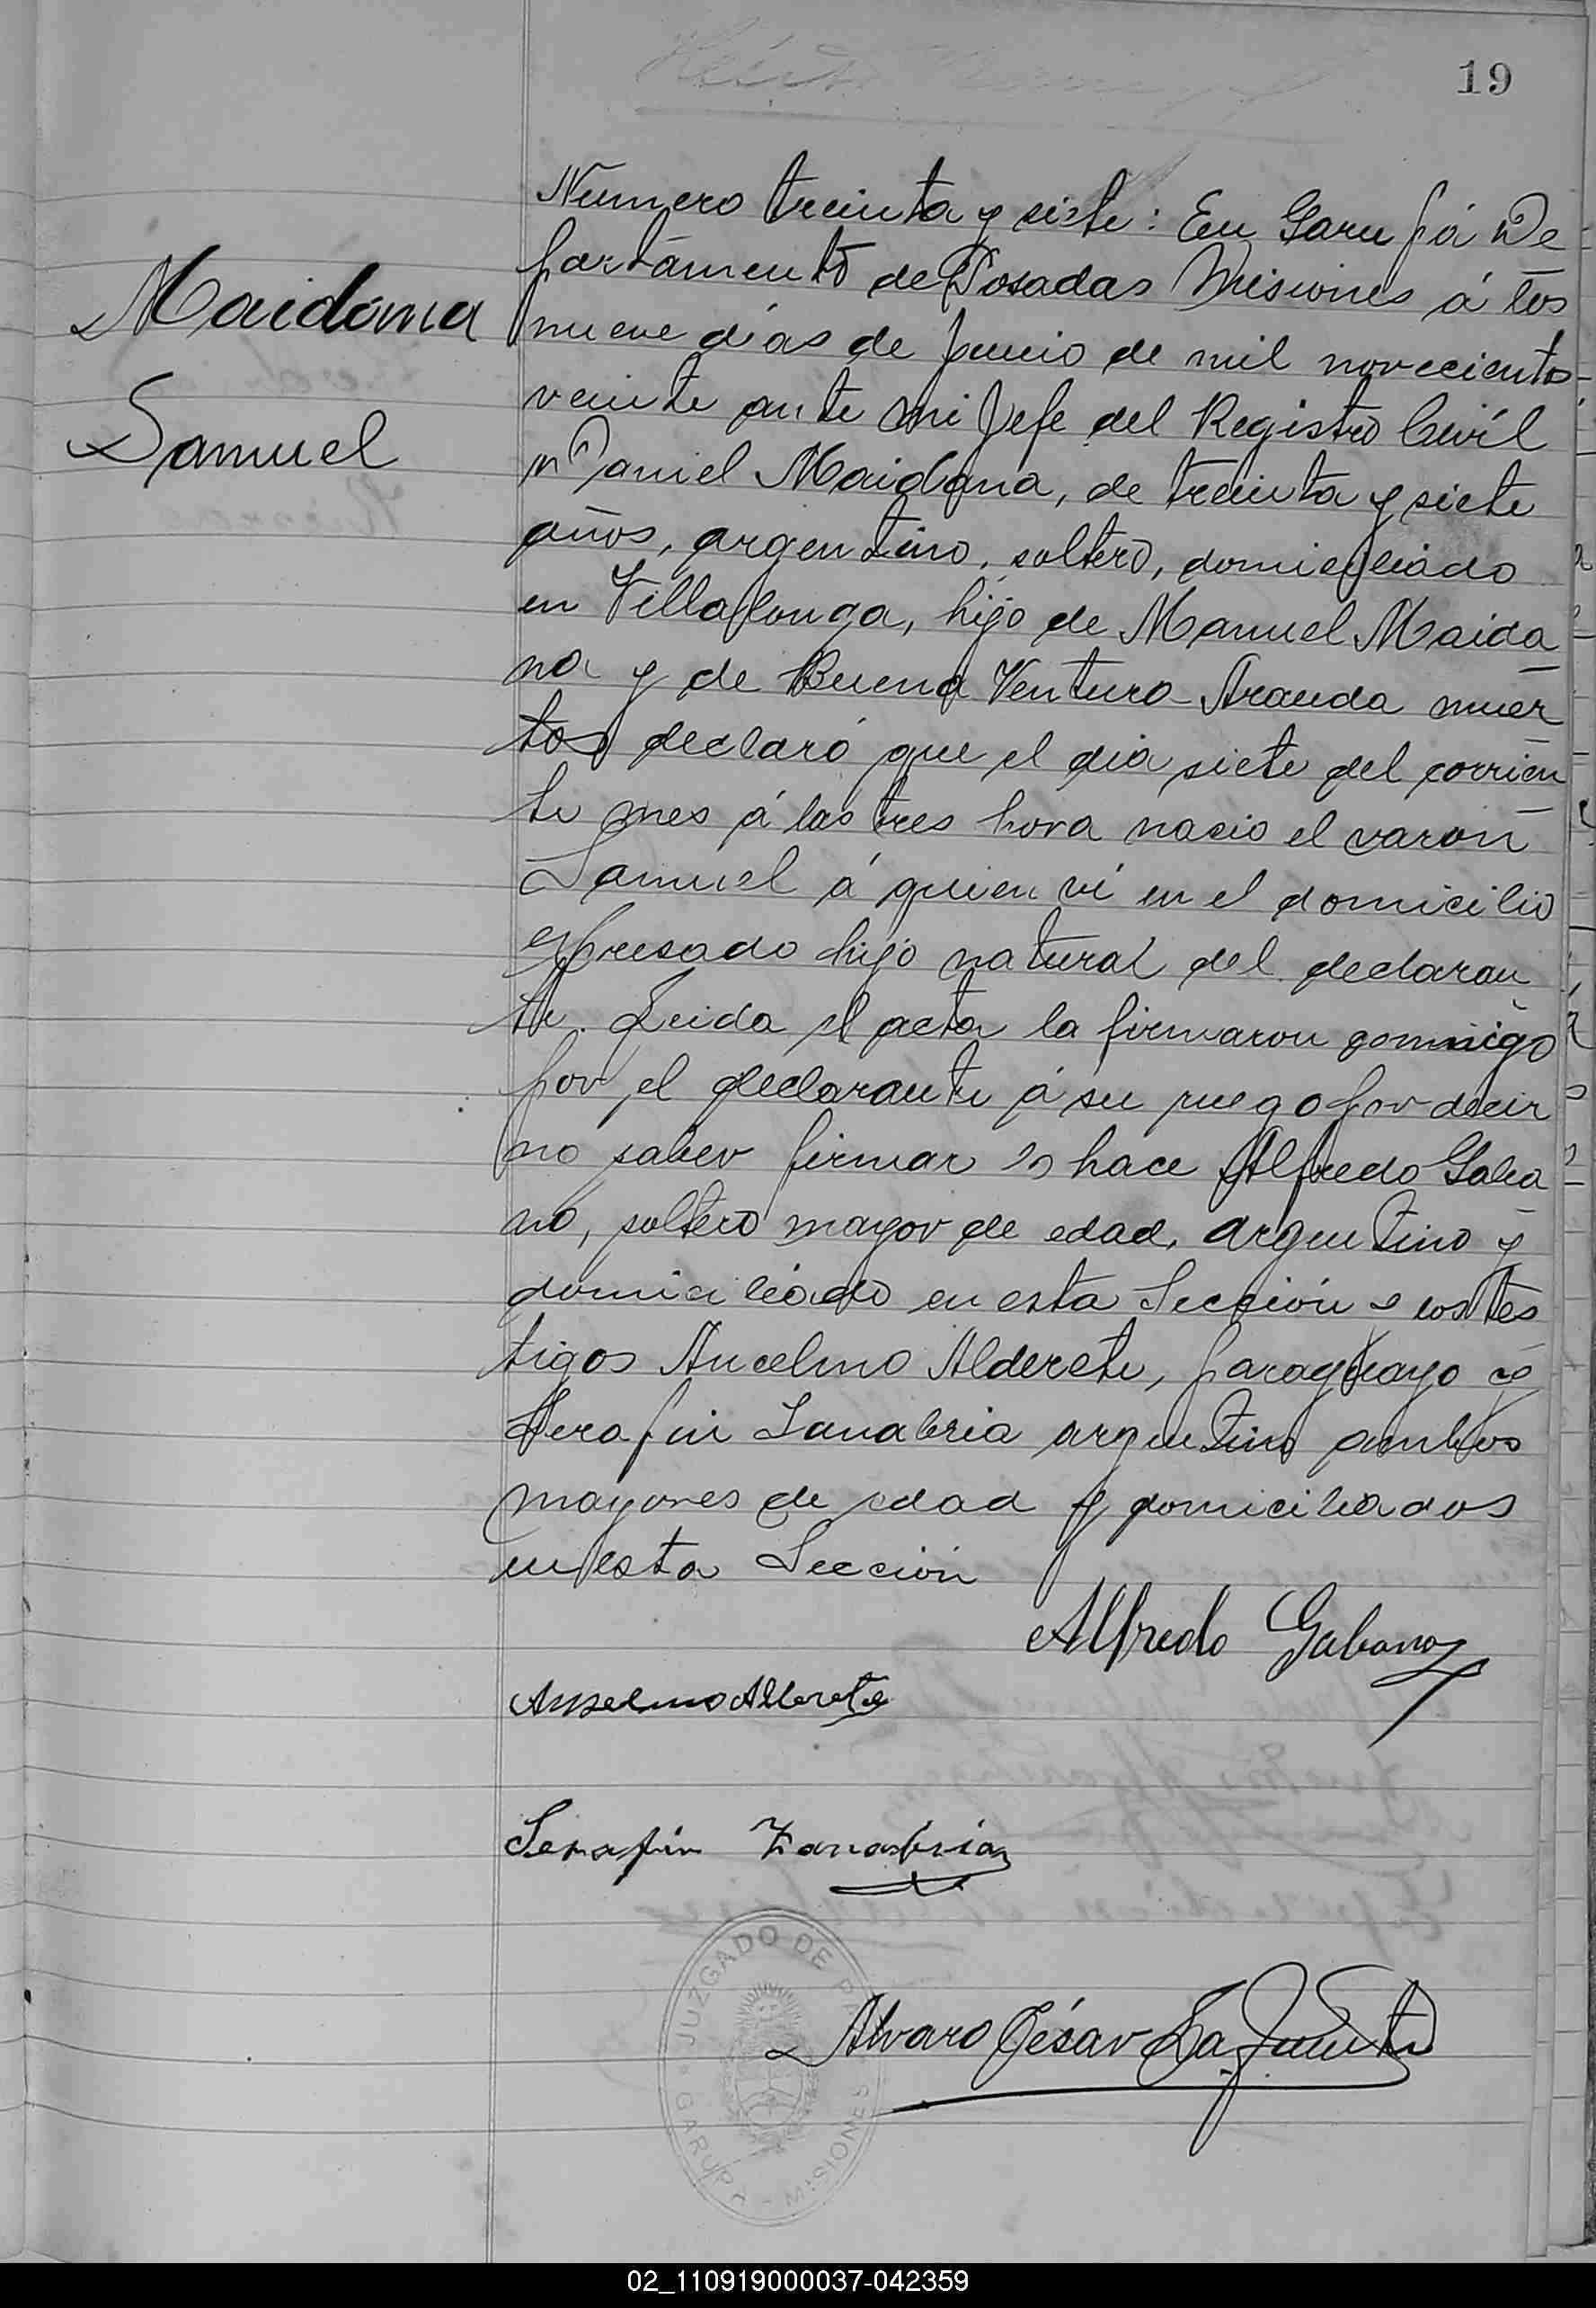 19
Maidana
Samuel
Número treinta y siete: En Garupá De
partamento de Posadas Misiones á los
nueve días de Junio de mil novecientos
veinte ante mi Jefe del Registro Civil
Daniel Maidana, de treinta y siete
años, argentino, soltero, domiciliado
en Villalonga, hijo de Manuel Maida
na y de Buena Ventura Aranda muer
tos declaró que el dia siete del corrien
te mes á las tres hora nacio el varón
Samuel á quien ví en el domicilio
espresado hijo natural del declaran
te. Leida el acta la firmaron conmigo
por el declarante á su ruego por decir
no saber firmar lo hace Alfredo Galea
no, soltero mayor de edad, argentino y
domiciliado en esta Sección e los tes
tigos Ancelmo Alderete, paraguayo y
Serafin Sanabria argentino ambos
mayores de edad y domiciliados
en esta Sección
Alfredo
Anselmo Alderete
Serafin Zanabria
JUZGADO DE PAZ
Alvaro César La Fuente
GARUPA - MISIONES
02_110919000037-042359